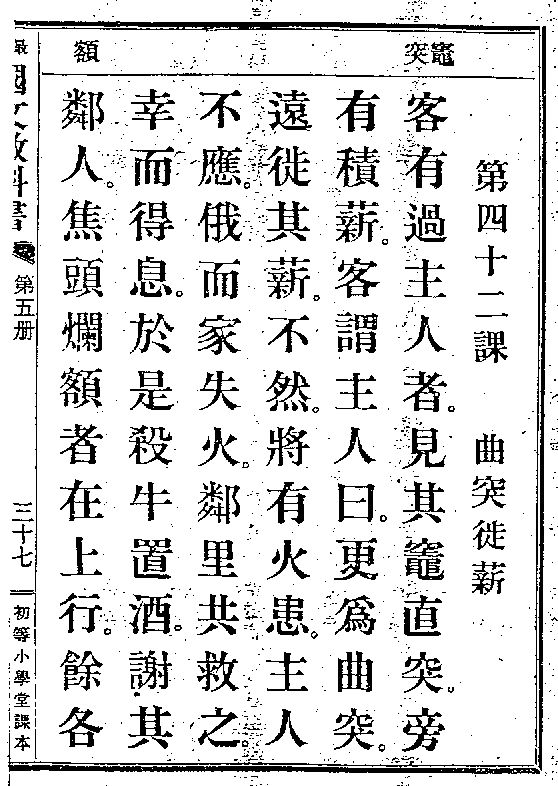 竈突
額
第四十二課　曲突徙薪
客有過主人者。見其竈直突。旁
有積薪。客謂主人曰。更爲曲突。
遠徙其薪。不然。將有火患。主人
不應。俄而家失火。鄰里共救之。
幸而得息。於是殺牛置酒。謝其
鄰人。焦頭爛額者在上行。餘各
最
國文教科書
第五册
三十七
初等小學堂課本